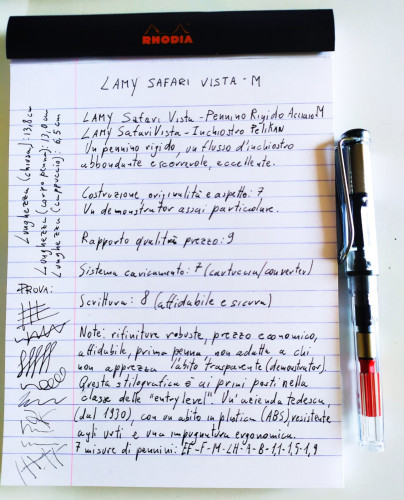 RHODIA
LAMY SAFARI VISTA - M
LAMY Safari Vista - Pennino Rigido Acciaio M
LAMY Safari Vista - Inchiostro Pelikan
Un pennino rigido, un flusso d'inchiostro
abbondante e scorrevole, eccellente.
Costruzione, originalità e aspetto: 7
Un demonstrator assai particolare.
Rapporto qualità prezzo: 9
Sistema caricamento: 7 (cartuccia/converter)
Scrittura: 8 (affidabile e sicura)
Note: rifiniture robuste, prezzo economico,
affidabile, prima penna, non adatta a chi
non apprezza l'abito trasparente (demonstrator).
Questa stilografica è ai primi posti nella
classe delle "entry level". Un'azienda tedesca,
(dal 1930), con un abito in plastica (ABS), resistente
agli urti e una impugnatura ergonomica.
7 misure di pennini: EF-F-M-LH-B-1,1-1,5-1,9
Lunghezza (chiusa): 13,8 cm
Lunghezza (corpo penna): 13,0 cm
Lunghezza (cappuccio): 6,5 cm
PROVA: